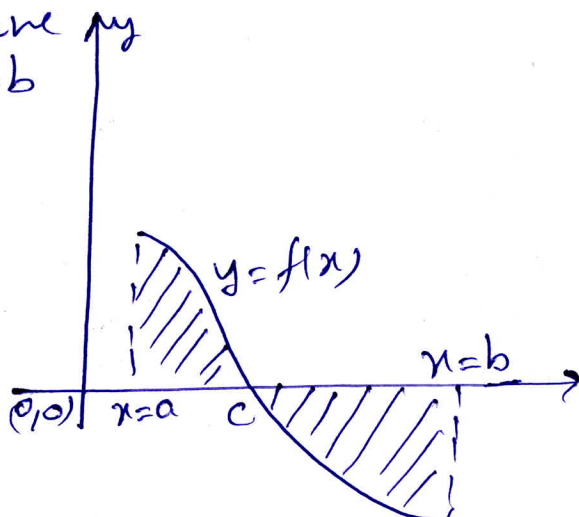 y
b
y=f(x)
x=b
(0,0) x=a c